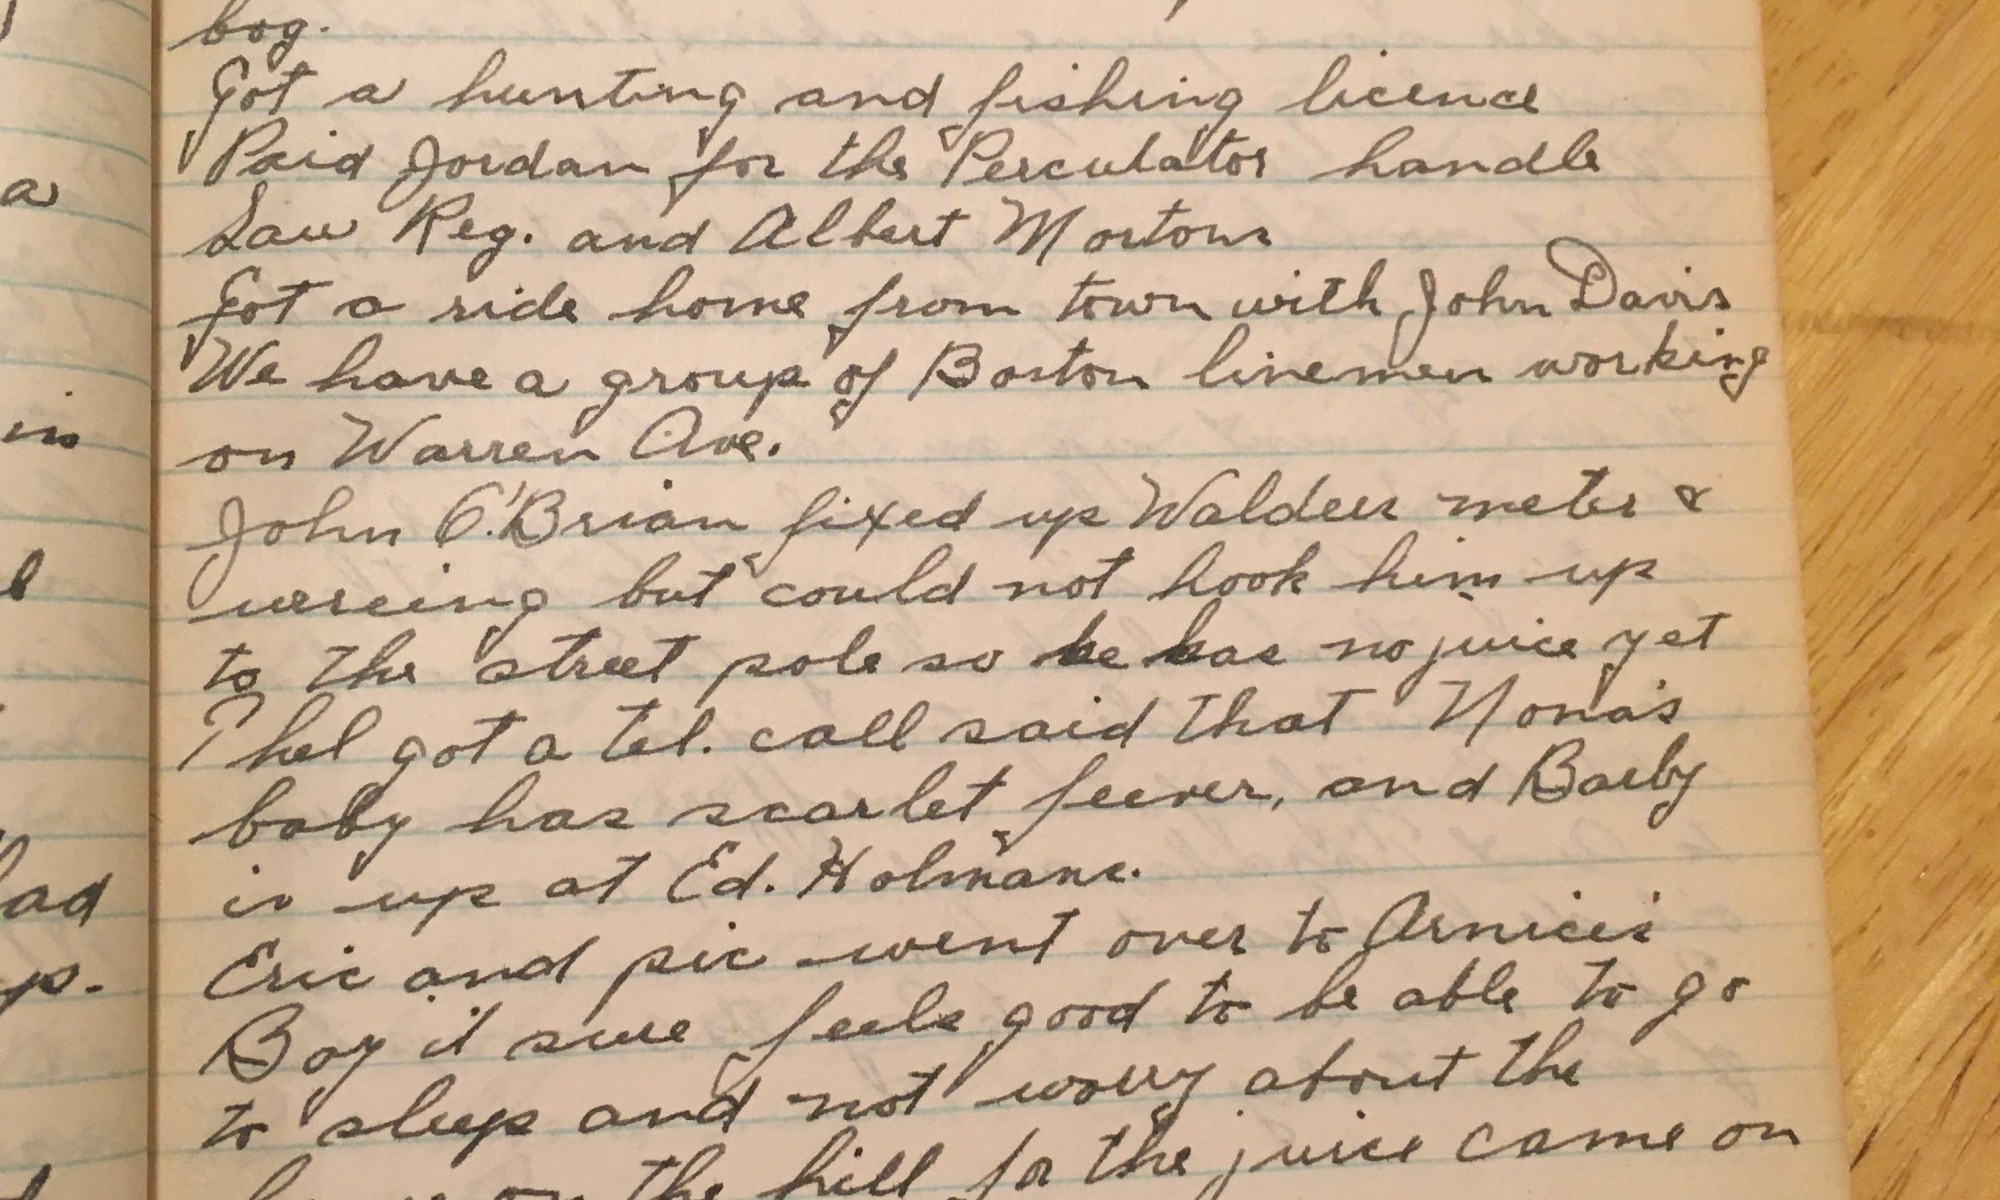 bog.
Got a hunting and fishing licence
Paid Jordan for the Perculator handle
Saw Reg. and Albert Mortons
Got a ride home from town with John Davis
We have a group of Boston linemen working
on Warren Ave.
John O'Brian fixed up Walders meter &
wereing but could not hook him up
to the street pole so he has no juice yet
Thel got a tel. call said that Nona's
baby has scarlet feever, and Barby
is up at Ed. Holmans.
Eric and pic went over to Arnies
Boy it sure feels good to be able to go
to sleep and not worry about the
on the hill for the juice came on
a
in
l
had
p.